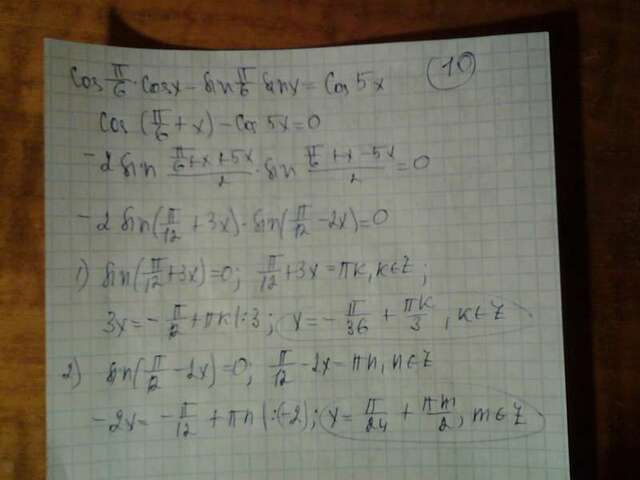 cos π/6 · cosx - sin π/6 sinx = cos 5x (10)
cos (π/6 + x) - cos 5x = 0
-2 sin (π/6 + x + 5x)/2 · sin (π/6 + x - 5x)/2 = 0
-2 sin(π/12 + 3x) · sin(π/12 - 2x) = 0
1) sin(π/12 + 3x) = 0; π/12 + 3x = πk, k∈Z;
3x = - π/12 + πk |:3; x = - π/36 + πk/3, k∈Z
2) sin(π/12 - 2x) = 0; π/12 - 2x = πn, n∈Z
-2x = - π/12 + πn |:(-2); x = π/24 + πm/2, m∈Z